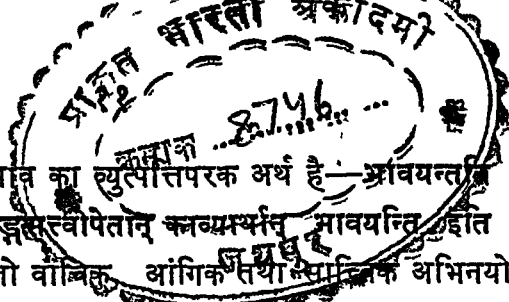 प्राकृत भारती अकादमी
क्रमांक 8746
जयपुर
भाव का व्युत्पत्तिपरक अर्थ है—भावयन्तीति
ङ्गसत्त्वोपेतान् काव्यार्थान् भावयन्ति इति
वाचिक आंगिक तथा सात्त्विक अभिनयो